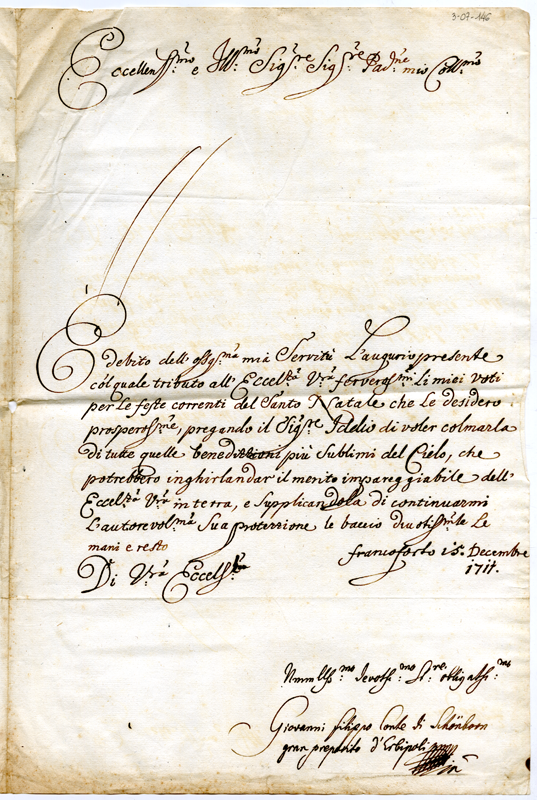 3-07-146
Eccellen^ssmo e Ill^mo Sig^re Sig^re Pad^ne mio Coll^mo
È debito dell' ossq^ma mia Servitù L'augurio presente
còl quale tributo all' Eccel^za V^ra ferveros^mi Li miei voti
per le feste correnti del Santo Natale che Le desidero
prosperos^me, pregando il Sig^re Iddio di voler colmarla
di tutte quelle benedizioni più sublimi del Cielo, che
potrebbero inghirlandar il merito impareggiabile dell'
Eccel^za V^ra in terra, e supplicandola di continuarmi
L'autorevol^ma Sua protezzione le baccio divotis^mte Le
mani e resto
francoforto 15. Decembre
1711.
Di V^ra Eccel^za
Ummilis^mo devotis^mo S^re obligatis^mo
Giovanni filippo Conte di Schönborn
gran preposito d'Erbipoli